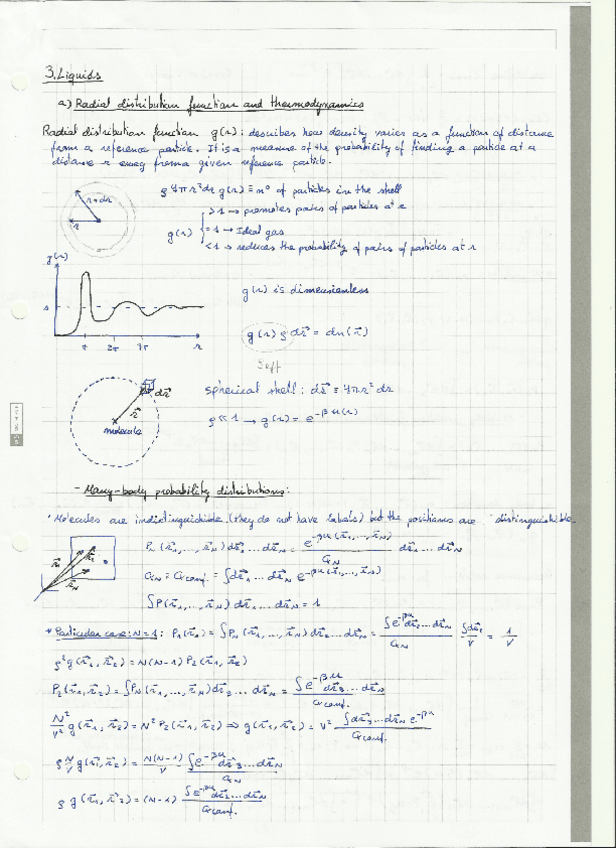 3. Liquids
a) Radial distribution function and thermodynamics
Radial distribution function g(r): describes how density varies as a function of distance
from a reference particle. It is a measure of the probability of finding a particle at a
distance r away from a given reference particle.
ρ4πr²dr g(r) ≡ nº of particles in the shell
r+dr
r
g(r) { >1 → promotes pairs of particles at r
=1 → Ideal gas
<1 → reduces the probability of pairs of particles at r
g(r)
g(r) is dimensionless
1
g(r)ρ dr⃗ = dn(r⃗)
σ 2σ 3σ r
ρeff
dr⃗
spherical shell: dr⃗ ≡ 4πr²dr
r⃗
ρ≪1 → g(r) = e^{-βu(r)}
molecule
- Many-body probability distributions:
· Molecules are indistinguishable (they do not have labels) but the positions are distinguishable
P_N(r⃗₁,...,r⃗_N)dr⃗₁...dr⃗_N = e^{-βu(r⃗₁,...,r⃗_N)}/Q_N dr⃗₁...dr⃗_N
Q_N ≡ Q_conf. = ∫dr⃗₁...dr⃗_N e^{-βu(r⃗₁,...,r⃗_N)}
∫P(r⃗₁,...,r⃗_N)dr⃗₁...dr⃗_N = 1
* Particular case: N=1: P₁(r⃗₁) = ∫P_N(r⃗₁,...,r⃗_N)dr⃗₂...dr⃗_N = ∫e^{-βu}dr⃗₂...dr⃗_N/Q_N = 1/V
ρ²g(r⃗₁,r⃗₂) = N(N-1)P₂(r⃗₁,r⃗₂)
P₂(r⃗₁,r⃗₂) = ∫P_N(r⃗₁,...,r⃗_N)dr⃗₃...dr⃗_N = ∫e^{-βu}dr⃗₃...dr⃗_N/Q_conf.
N²/V² g(r⃗₁,r⃗₂) = N²P₂(r⃗₁,r⃗₂) ⇒ g(r⃗₁,r⃗₂) = V² ∫dr⃗₃...dr⃗_N e^{-βu}/Q_conf.
ρ N/V g(r⃗₁,r⃗₂) = N(N-1)/V ∫e^{-βu}dr⃗₃...dr⃗_N/Q_N
ρ g(r⃗₁,r⃗₂) = (N-1) ∫e^{-βu}dr⃗₃...dr⃗_N/Q_conf.